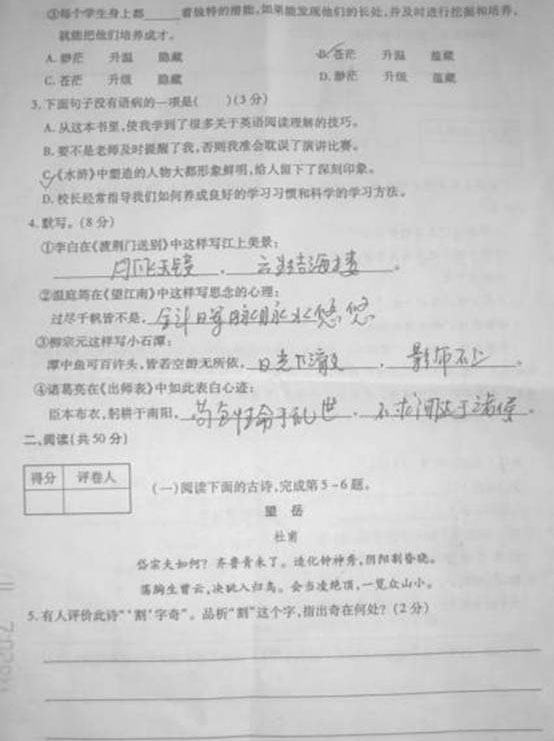 ③每个学生身上都____着独特的潜能,如果能发现他们的长处,并及时进行挖掘和培养,
就能把他们培养成才。
A. 渺茫 升温 隐藏 B. 苍茫 升温 蕴藏
C. 苍茫 升级 隐藏 D. 渺茫 升级 蕴藏
3. 下面句子没有语病的一项是( )(3分)
A. 从这本书里,使我学到了很多关于英语阅读理解的技巧。
B. 要不是老师及时提醒了我,否则我准会耽误了演讲比赛。
C.《水浒》中塑造的人物大都形象鲜明,给人留下了深刻印象。
D. 校长经常指导我们如何养成良好的学习习惯和科学的学习方法。
4. 默写。(8分)
①李白在《渡荆门送别》中这样写江上美景:
月下飞天镜,云生结海楼。
②温庭筠在《望江南》中这样写思念的心理:
过尽千帆皆不是,斜日晖脉脉水悠悠
③柳宗元这样写小石潭:
潭中鱼可百许头,皆若空游无所依,日光下澈,影布石上。
④诸葛亮在《出师表》中如此表白心迹:
臣本布衣,躬耕于南阳,苟全性命于乱世,不求闻达于诸侯。
二、阅读(共50分)
得分 评卷人
(一)阅读下面的古诗,完成第5-6题。
望 岳
杜甫
岱宗夫如何?齐鲁青未了。造化钟神秀,阴阳割昏晓。
荡胸生曾云,决眦入归鸟。会当凌绝顶,一览众山小。
5. 有人评价此诗“‘割’字奇”。品析“割”这个字,指出奇在何处?(2分)